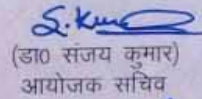 S. Kumar
(डा० संजय कुमार)
आयोजक सचिव